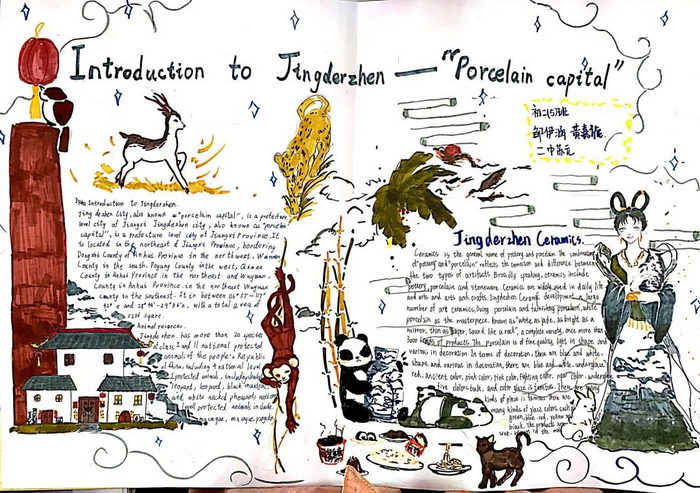 Introduction to Jingderzhen — "Porcelain capital"
初二(5)班
二中苏元
Introduction to Jingderzhen.
Jing dezhen City, also known as "porcelain capital", is a prefecture
level city of Jiangxi Jingdezhen city, also known as "porcelain
capital", is a prefecture level city of Jiangxi Province. It
is located in the northeast of Jiangxi Province, bordering
County of Anhui Province in the northwest, Wannian
County in the south, Poyang County in the west, Qimen
County in Anhui Province in the northeast and Wuyuan
County in Anhui Province in the northeast Wuyuan
County in the southeast. It is between
with a total area of
Animal resources.
Jingdezhen has more than 20 species
of class I and II national protected
animals of the people's Republic
of China, including 4 national level
protected animals, including
leopard, leopard, black
and white naked pheasant; national
level protected animals include
macaque,
Jingderzhen Ceramics.
Ceramics is the general name of pottery and porcelain. The combination
of pottery and "porcelain" reflects the common and difference between
the two types of artifacts. Broadly speaking, ceramics include
pottery, porcelain and stoneware. Ceramics are widely used in daily life
and arts and arts and crafts. Jingdezhen Ceramic development a large
number of art ceramics, living porcelain and furnishing porcelain, white
porcelain as the masterpiece, known as "white as jade, as bright as a
mirror, thin as paper, sound like a rock", a complete variety, once more than
3000 kinds of products. The porcelain is of fine quality, light in shape and
various in decoration. In terms of decoration, there are blue and white
shape, and various in decoration, there are blue and white, underglaze
red, ancient color, pink color, fighting color, new color, underglaze
five colors, bulk, and color glaze is famous. There are many
kinds of glaze is famous. There are
many kinds of glaze colors, such as
green, blue, red, yellow and
black. The products are
in the world